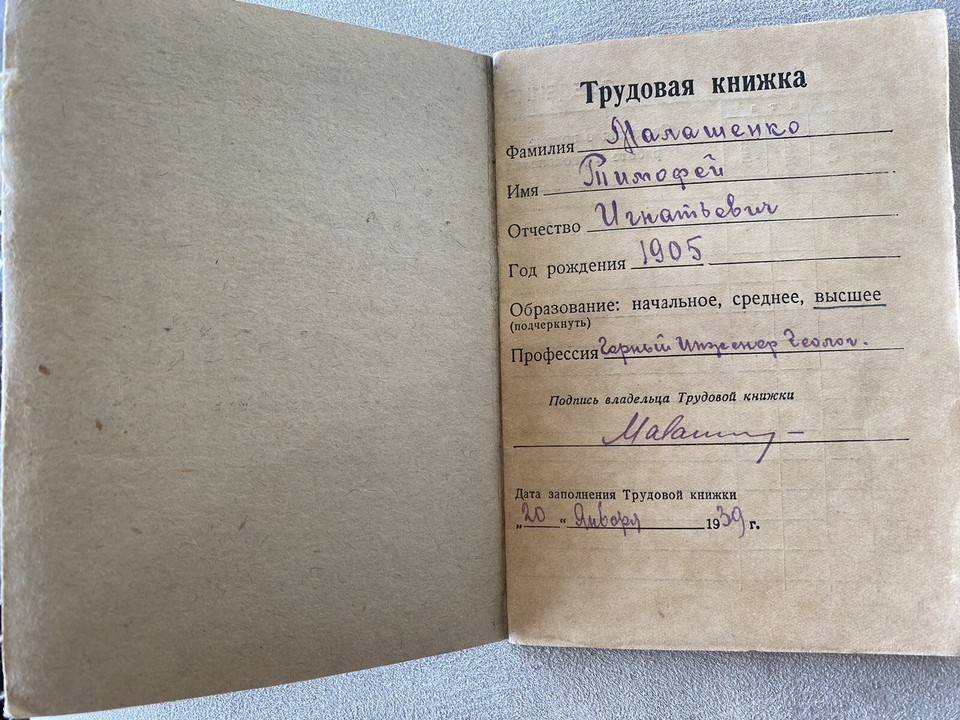 Трудовая книжка
Фамилия Малашенко
Имя Тимофей
Отчество Игнатьевич
Год рождения 1905
Образование: начальное, среднее, высшее
(подчеркнуть)
Профессия Горный Инженер Геолог.
Подпись владельца Трудовой книжки
Дата заполнения Трудовой книжки
„20“ Января 1939 г.